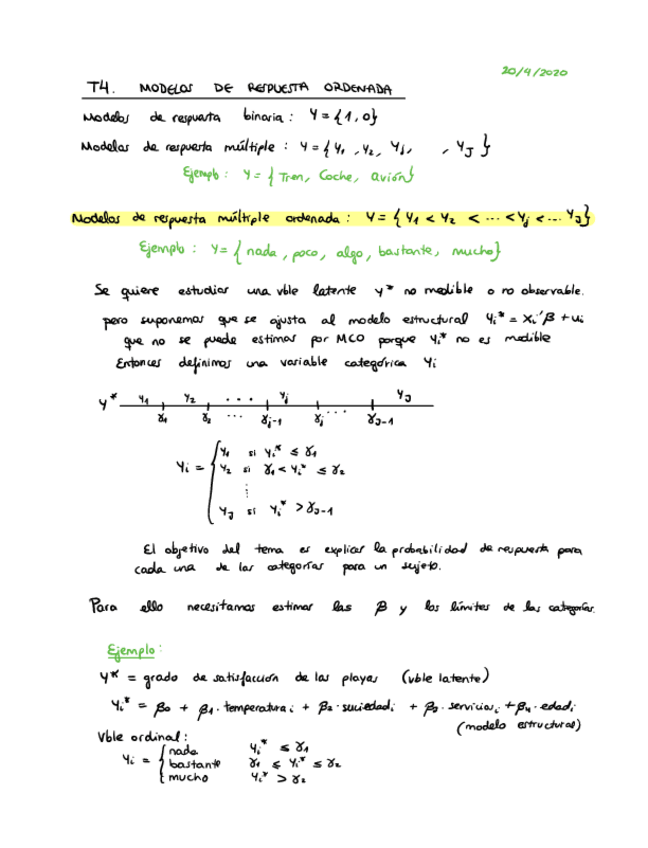 20/4/2020
T4. MODELOS DE RESPUESTA ORDENADA
Modelos de respuesta binaria: Y = {1, 0}
Modelos de respuesta múltiple: Y = {Y₁, Y₂, Yⱼ, , Y_J}
Ejemplo: Y = {Tren, Coche, avión}
Modelos de respuesta múltiple ordenada: Y = {Y₁ < Y₂ < ... < Yⱼ < ... Y_J}
Ejemplo: Y = {nada, poco, algo, bastante, mucho}
Se quiere estudiar una vble latente y* no medible o no observable.
pero suponemos que se ajusta al modelo estructural Yᵢ* = Xᵢ'β + uᵢ
que no se puede estimar por MCO porque Yᵢ* no es medible
Entonces definimos una variable categórica Yᵢ
Y* Y₁ Y₂ ... Yⱼ Y_J
γ₁ γ₂ ... γⱼ₋₁ γⱼ ... γ_J₋₁
Yᵢ = { Y₁ si Yᵢ* ≤ γ₁
Y₂ si γ₁ < Yᵢ* ≤ γ₂
⋮
Y_J si Yᵢ* > γ_J₋₁
El objetivo del tema es explicar la probabilidad de respuesta para
cada una de las categorías para un sujeto.
Para ello necesitamos estimar las β y los límites de las categorías.
Ejemplo:
Y* = grado de satisfacción de las playas (vble latente)
Yᵢ* = β₀ + β₁·temperaturaᵢ + β₂·suciedadᵢ + β₃·serviciosᵢ + β₄·edadᵢ
(modelo estructural)
Vble ordinal:
Yᵢ = { nada Yᵢ* ≤ γ₁
bastante γ₁ ≤ Yᵢ* ≤ γ₂
mucho Yᵢ* > γ₂